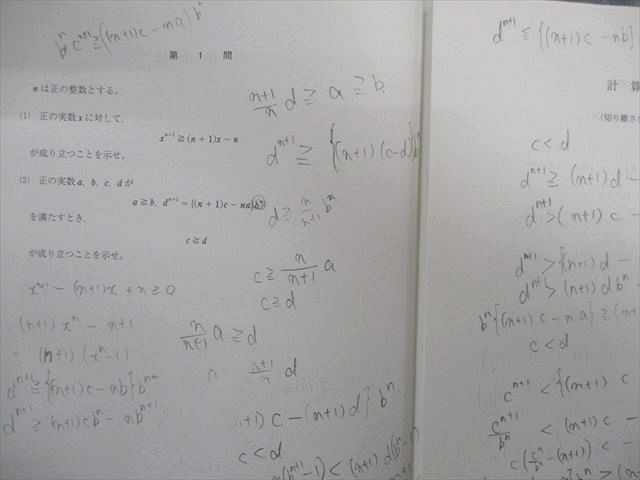 bⁿ cⁿ⁺¹ ≧ ((n+1)c - na) bⁿ
第 1 問
nは正の整数とする。
(1) 正の実数xに対して,
xⁿ⁺¹ ≧ (n+1)x − n
が成り立つことを示せ。
(2) 正の実数a, b, c, dが
a ≧ b, dⁿ⁺¹ = {(n+1)c − na}bⁿ
を満たすとき,
c ≧ d
が成り立つことを示せ。
xⁿ⁺¹ - (n+1)x + n ≥ 0
(n+1)xⁿ - n+1
= (n+1)(xⁿ-1)
dⁿ⁺¹ ≥ (n+1)cbⁿ - nbⁿ⁺¹
n+1/n d ≧ a ≧ b.
dⁿ⁺¹ ≧ {(n+1)(c-d)}bⁿ
d ≥ n/n+1 bⁿ
c ≥ n/n+1 a
c ≥ d
n/n+1 a ≥ d
n+1/n d
n+1) c - (n+1)d} bⁿ
c < d
(bⁿ⁺¹-1) < (n+1) d(bⁿ-1)
dⁿ⁺¹ ≦ {(n+1)c - nb}
計 算
(切り離さ
c < d
dⁿ⁺¹ ≥ (n+1)d -
dⁿ⁺¹ > (n+1) c -
dⁿ⁺¹ > {(n+1)d -
dⁿ⁺¹ > (n+1) d bⁿ -
bⁿ{(n+1)c - na} ≥ (n+
c < d
cⁿ⁺¹ < {(n+1) c
cⁿ⁺¹/bⁿ < (n+1) c -
c(cⁿ/bⁿ - (n+1)) < -